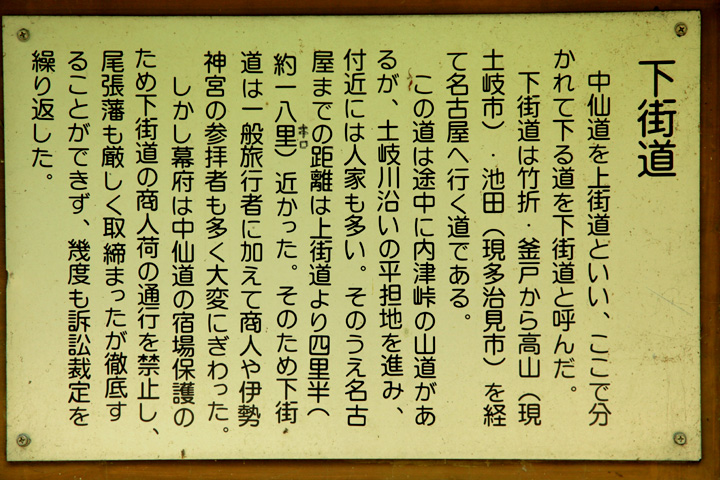 下街道
中仙道を上街道といい、ここで分
かれて下る道を下街道と呼んだ。
下街道は竹折・釜戸から高山（現
土岐市）・池田（現多治見市）を経
て名古屋へ行く道である。
この道は途中に内津峠の山道があ
るが、土岐川沿いの平担地を進み、
付近には人家も多い。そのうえ名古
屋までの距離は上街道より四里半（
約一八里）近かった。そのため下街
キロ
道は一般旅行者に加えて商人や伊勢
神宮の参拝者も多く大変にぎわった。
しかし幕府は中仙道の宿場保護の
ため下街道の商人荷の通行を禁止し、
尾張藩も厳しく取締まったが徹底す
ることができず、幾度も訴訟裁定を
繰り返した。